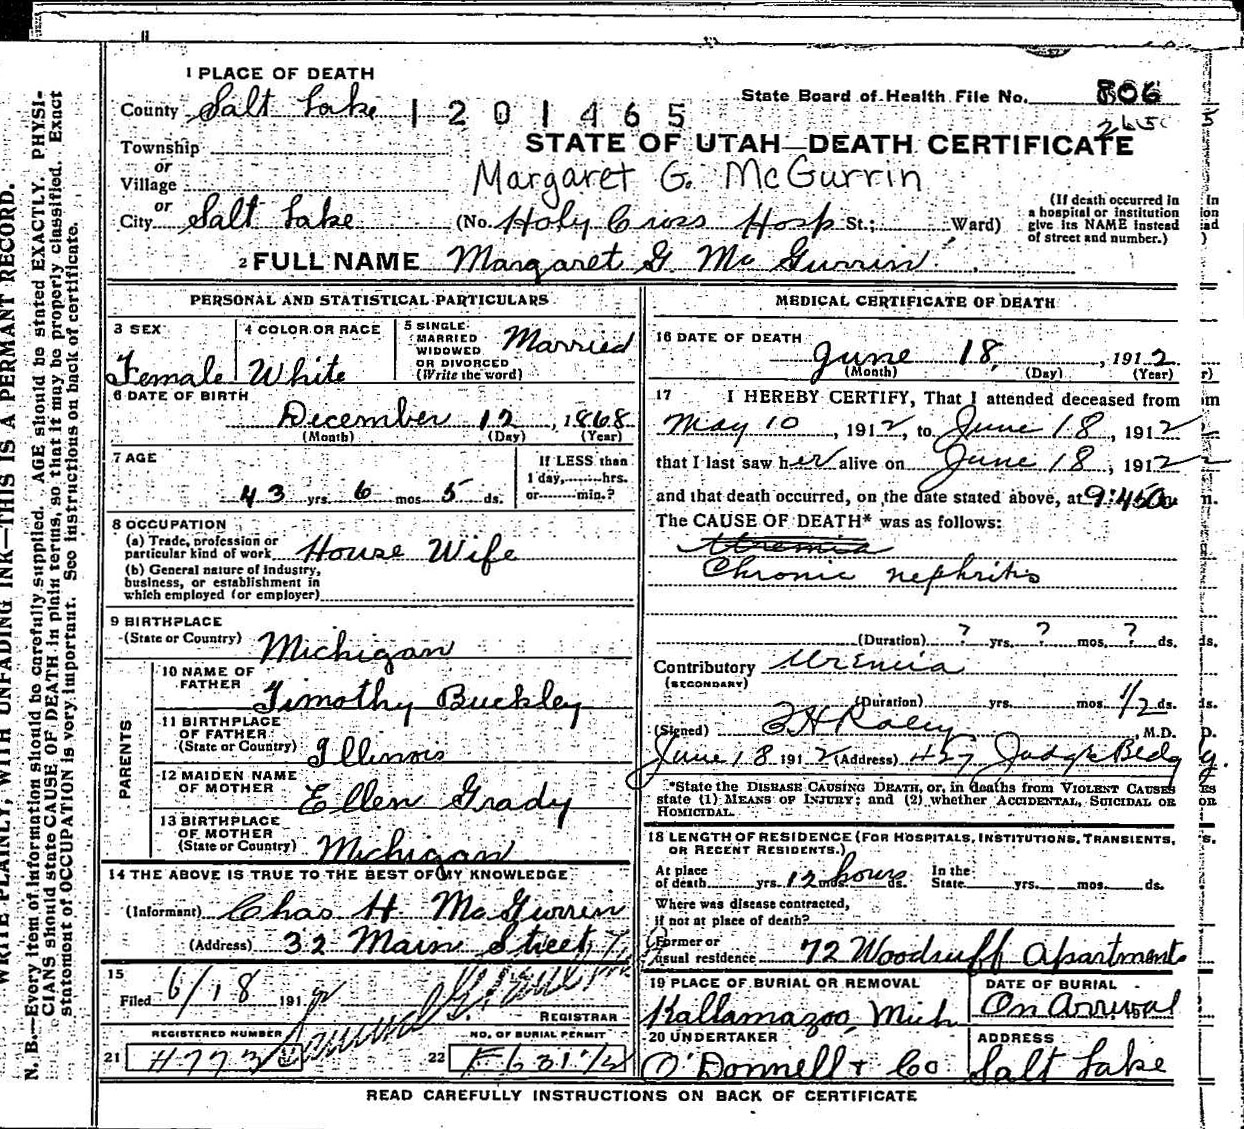 1 PLACE OF DEATH
County Salt Lake 1201465
State Board of Health File No. 806
2650
Township
STATE OF UTAH—DEATH CERTIFICATE
or
Village
Margaret G. McGurrin
or
City Salt Lake (No. Holy Cross Hosp St.; Ward)
(If death occurred in
a hospital or institution
give its NAME instead
of street and number.)
2 FULL NAME Margaret G McGurrin
PERSONAL AND STATISTICAL PARTICULARS
3 SEX
Female
4 COLOR OR RACE
White
5 SINGLE
MARRIED
WIDOWED
OR DIVORCED
(Write the word)
Married
6 DATE OF BIRTH
December 12, 1868
(Month) (Day) (Year)
7 AGE
43 yrs. 6 mos. 5 ds.
If LESS than
1 day, hrs.
or min.?
8 OCCUPATION
(a) Trade, profession or
particular kind of work House Wife
(b) General nature of industry,
business, or establishment in
which employed (or employer)
9 BIRTHPLACE
(State or Country) Michigan
PARENTS
10 NAME OF
FATHER Timothy Buckley
11 BIRTHPLACE
OF FATHER
(State or Country) Illinois
12 MAIDEN NAME
OF MOTHER Ellen Grady
13 BIRTHPLACE
OF MOTHER
(State or Country) Michigan
14 THE ABOVE IS TRUE TO THE BEST OF MY KNOWLEDGE
(Informant) Chas H McGurrin
(Address) 32 Main Street
15
Filed 6/18 191 2
REGISTRAR
REGISTERED NUMBER
21 H773
NO. OF BURIAL PERMIT
22
MEDICAL CERTIFICATE OF DEATH
16 DATE OF DEATH
June 18, 1912
(Month) (Day) (Year)
17 I HEREBY CERTIFY, That I attended deceased from
May 10, 1912, to June 18, 1912
that I last saw her alive on June 18, 1912
and that death occurred, on the date stated above, at 9:45
The CAUSE OF DEATH* was as follows:
Uremia
Chronic nephritis
(Duration) ? yrs. ? mos. ? ds.
Contributory Uremia
(SECONDARY)
(Duration) yrs. mos. 1/2 ds.
(Signed) M.D.
June 18 1912 (Address) 427 Judge Bldg
*State the DISEASE CAUSING DEATH, or, in deaths from VIOLENT CAUSES
state (1) MEANS OF INJURY; and (2) whether ACCIDENTAL, SUICIDAL OR
HOMICIDAL.
18 LENGTH OF RESIDENCE (FOR HOSPITALS, INSTITUTIONS, TRANSIENTS,
OR RECENT RESIDENTS.)
At place
of death yrs. 12 mos. hours ds. In the
State yrs. mos. ds.
Where was disease contracted,
if not at place of death?
Former or
usual residence 72 Woodruff Apartments
19 PLACE OF BURIAL OR REMOVAL
Kallamazoo, Mich
DATE OF BURIAL
On Arrival
20 UNDERTAKER
O'Donnell & Co
ADDRESS
Salt Lake
READ CAREFULLY INSTRUCTIONS ON BACK OF CERTIFICATE
WRITE PLAINLY, WITH UNFADING INK—THIS IS A PERMANT RECORD.
N. B.—Every item of information should be carefully supplied. AGE should be stated EXACTLY. PHYSI-
CIANS should state CAUSE OF DEATH in plain terms, so that it may be properly classified. Exact
statement of OCCUPATION is very important. See instructions on back of certificate.